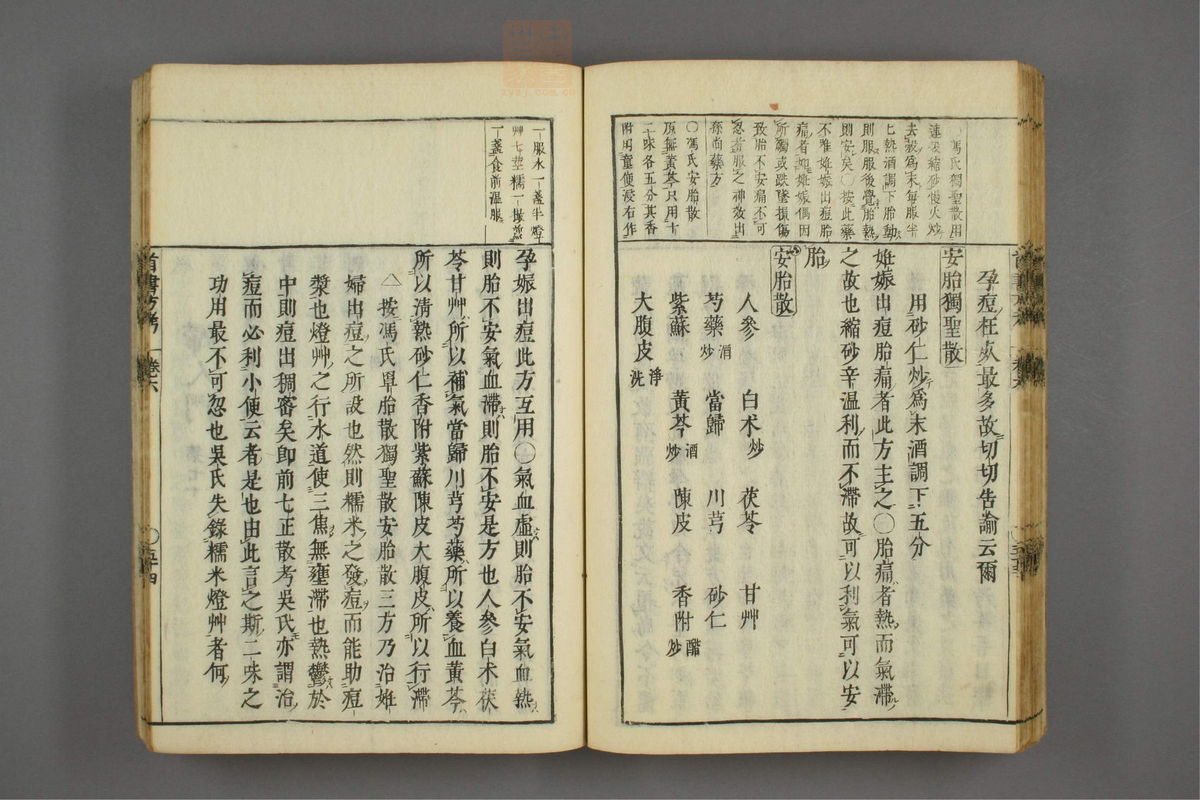 〇馮氏獨聖散用
連殼縮砂慢火炒
去殼爲末每服半
匕熱酒調下胎動
則服服後覺胎熱
即安矣〇按此藥
不唯姙娠出痘胎
痛者如姙娠偶因
所觸或跌墜損傷
致胎不安痛不可
忍者服之神效出
孫尚藥方
〇馮氏安胎散
原無黃芩只用十
二味各五分其香
附用童便浸右作
孕痘枉夾最多故切切告諭云爾
安胎獨聖散
用砂仁炒爲末酒調下五分
姙娠出痘胎痛者此方主之〇胎痛者熱而氣滯
之故也縮砂辛温利而不滯故可以利氣可以安
胎
安胎散
人參 白朮炒 茯苓 甘艸
芍藥酒炒 當歸 川芎 砂仁
紫蘇 黃芩酒炒 陳皮 香附醋炒
大腹皮淨洗
一服水一盞半燈
艸七莖糯一撮煎
一盞食前溫服
孕娠出痘此方互用〇氣血虛則胎不安氣血熱
則胎不安氣血滯則胎不安是方也人參白朮茯
苓甘艸所以補氣當歸川芎芍藥所以養血黃芩
所以清熱砂仁香附紫蘇陳皮大腹皮所以行滯
按馮氏罩胎散獨聖散安胎散三方乃治姙
婦出痘之所設也然則糯米之發痘而能助痘
漿也燈艸之行水道使三焦無壅滯也熱鬱於
中則痘出稠密矣即前七正散考吳氏亦謂治
痘而必利小便云者是也由此言之斯二味之
功用最不可忽也吳氏失錄糯米燈艸者何
首書方考 卷六 〇五十四